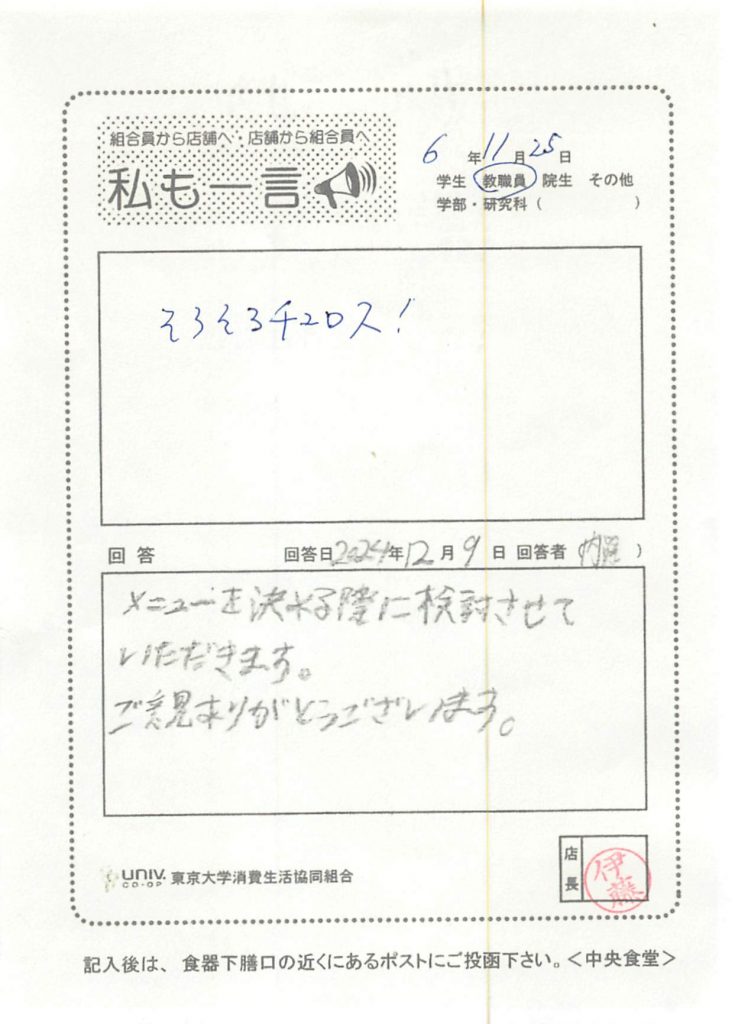 組合員から店舗へ・店舗から組合員へ
私も一言
6年11月25日
学生 教職員 院生 その他
学部・研究科( )
そろそろチュロス!
回答 回答日2024年12月9日 回答者( )
メニューを決める際に検討させて
いただきます。
ご意見ありがとうございます。
UNIV. CO-OP 東京大学消費生活協同組合
店長 伊藤
記入後は、食器下膳口の近くにあるポストにご投函下さい。<中央食堂>